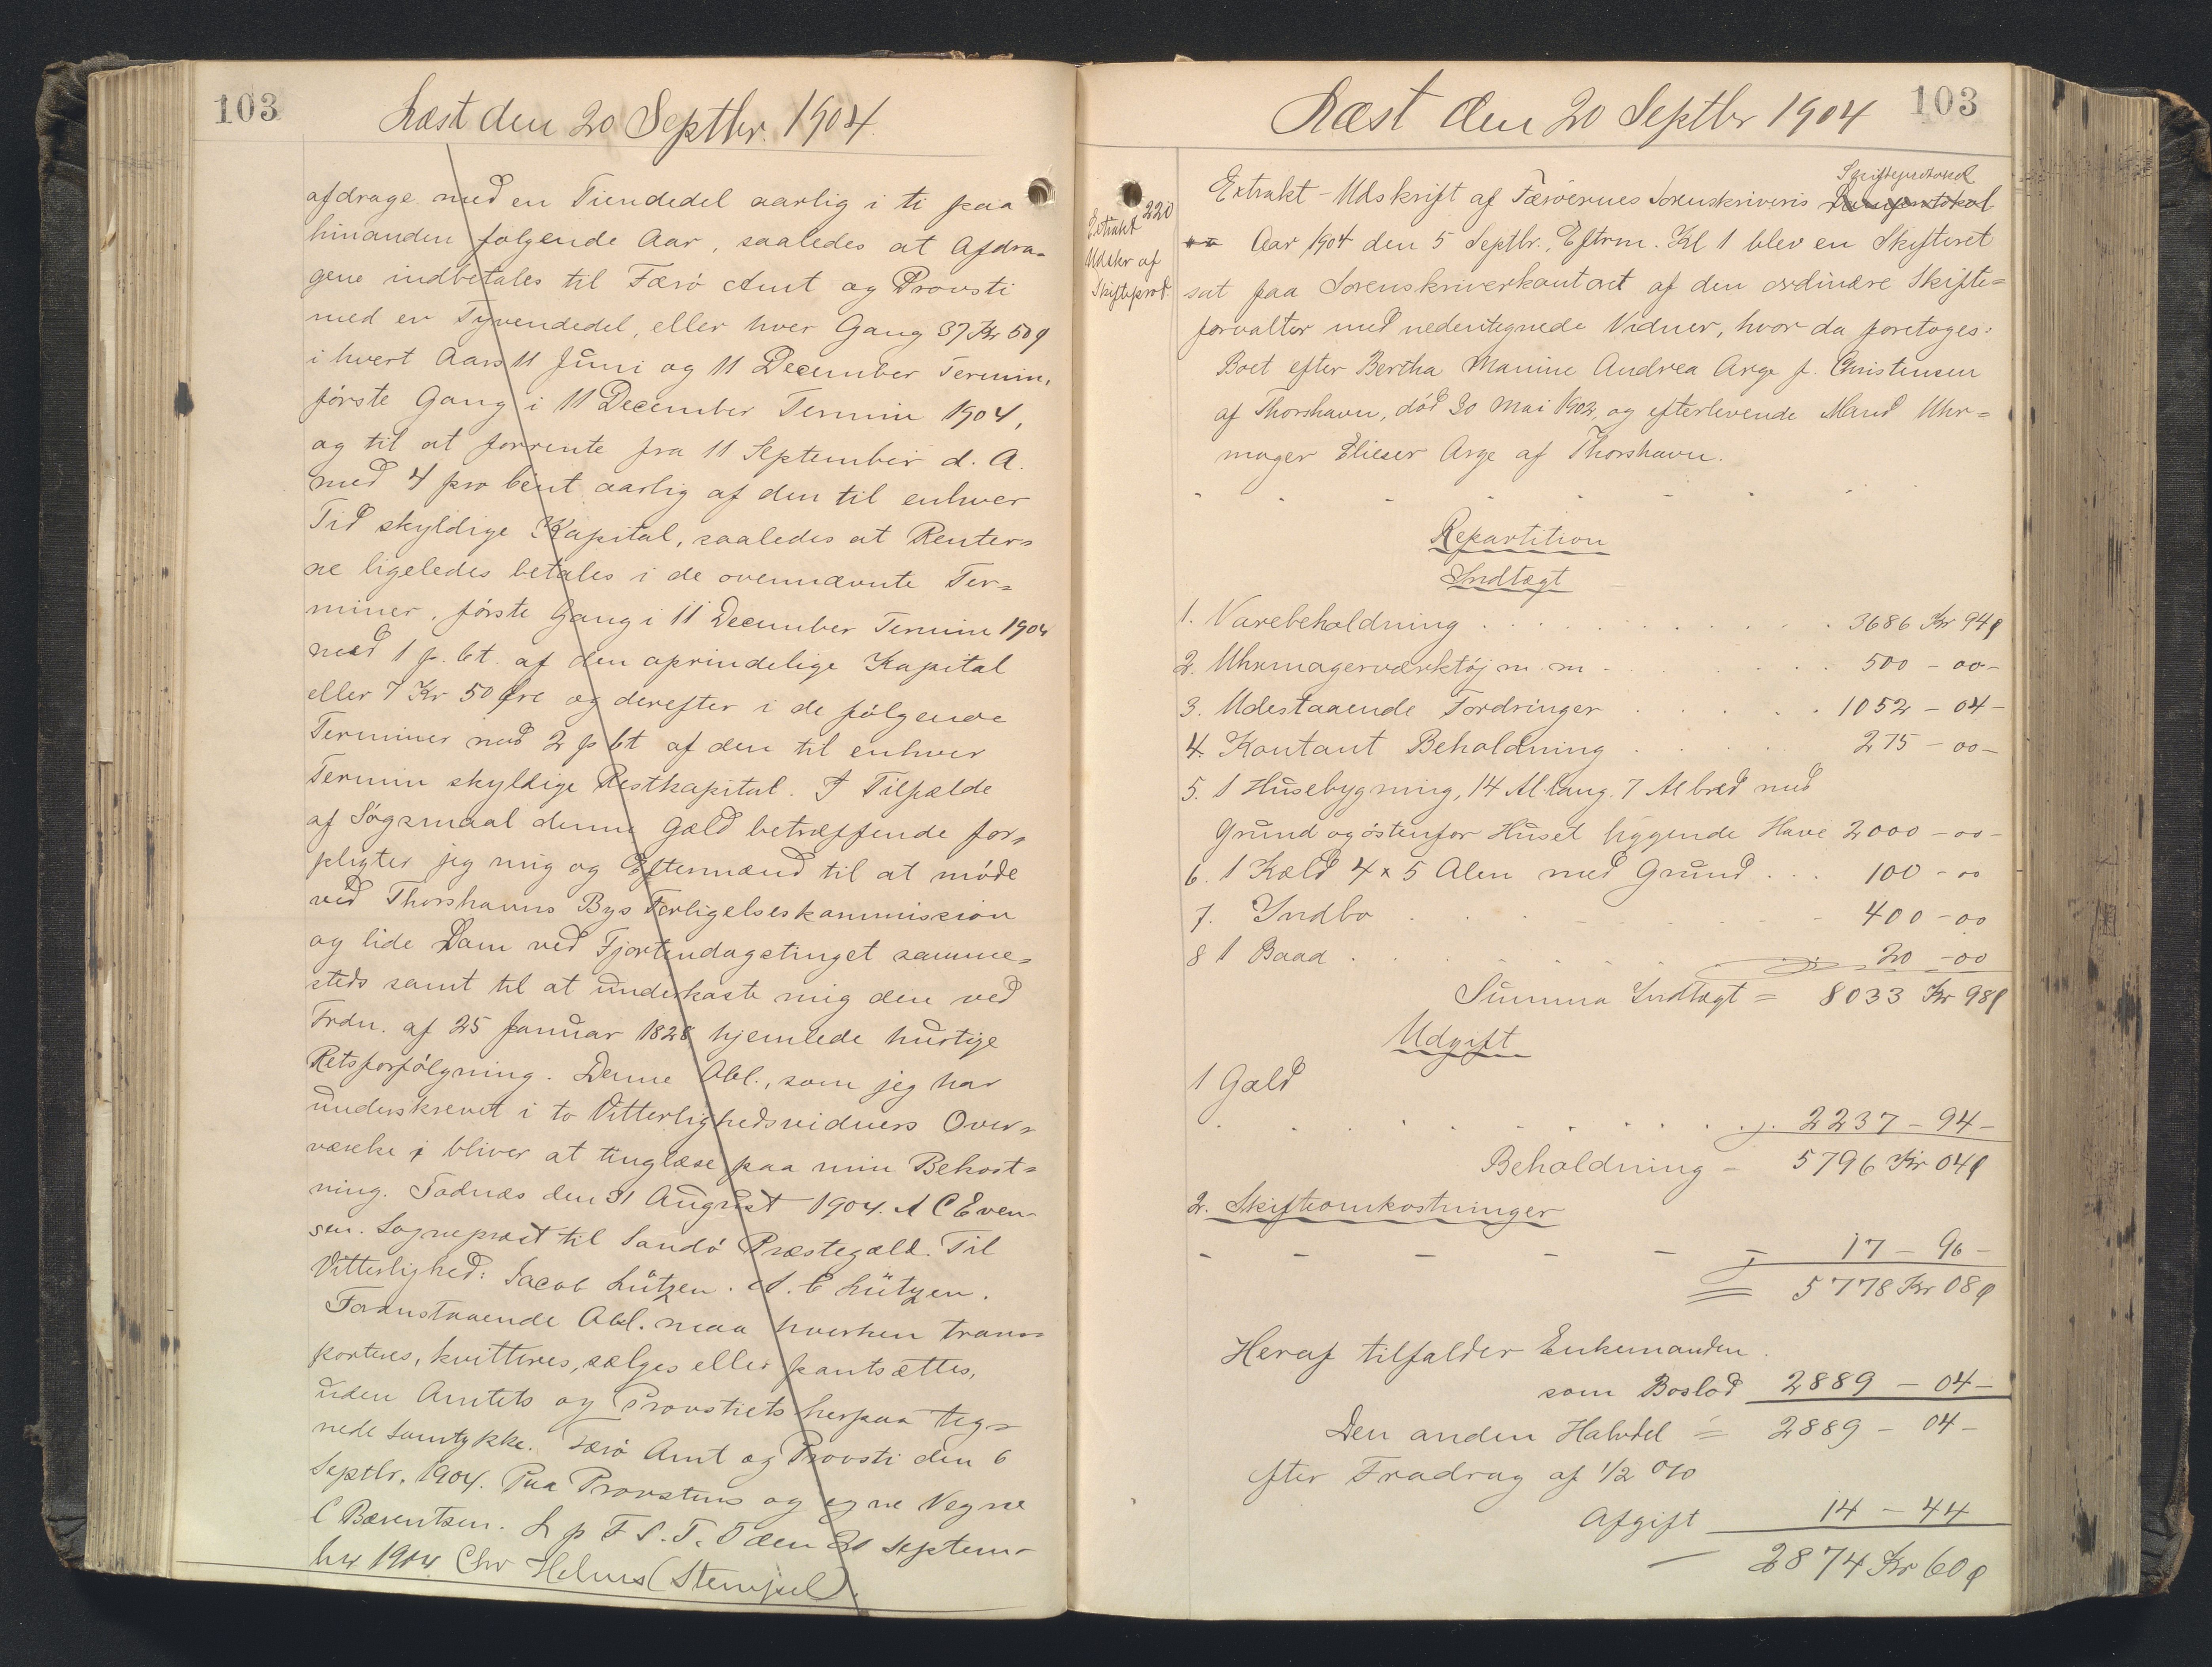 103
Læst den 20 Septbr. 1904.
afdrage med en Tiendedel aarlig i ti paa
hinanden følgende Aar, saaledes at Afdra-
gene indbetales til Færø Amt og Provsti
med en Tyvendedel, eller hver Gang 37 Kr 50 ø
i hvert Aars 11 Juni og 11 December Termin,
første Gang i 11 December Termin 1904,
og til at forrente fra 11 September d. A.
med 4 pro Cent aarlig af den til enhver
Tid skyldige Kapital, saaledes at Renter=
ne ligeledes betales i de ovennævnte Ter=
miner, første Gang i 11 December Termin 1904
med 1 p. Ct. af den oprindelige Kapital
eller 7 Kr 50 Øre og derefter i de følgende
Terminer med 2 p Ct af den til enhver
Termin skyldige Restkapital. I Tilfælde
af Søgsmaal denne Gæld betræffende for=
pligter jeg mig og Eftermænd til at møde
ved Thorshavns Bys Forligelseskommission
og lide Dom ved Fjortendagstinget samme=
steds samt til at underkaste mig den ved
Frdn. af 25 Januar 1828 hjemlede hurtige
Retsforfølgning. Denne Obl., som jeg har
underskrevet i to Vitterlighedsvidners Over=
værelse bliver at tinglæse paa min Bekost=
ning. Todnæs den 31 August 1904. A C Even-
sen. Sognepræst til Sandø Præstegæld. Til
Vitterlighed: Jacob Lützen. A. C Lützen.
Foranstaaende Obl. maa hverken trans=
porteres, kvitteres, sælges eller pantsættes,
uden Amtets og Provstiets herpaa teg=
nede Samtykke. Færø Amt og Provsti den 6
Septbr. 1904. Paa Provstens og egne Vegne
C Bærentsen. L p F S. T. T den 20 Septem-
ber 1904 Chr Helms (Stempel).
Læst den 20 Septbr 1904
103
220
Extrakt
Udskr af
Skifteprot.
Skifteprotocol
Extrakt-Udskrift af Færøernes Sorenskriveris
Aar 1904 den 5 Septbr., Eftrm. Kl 1 blev en Skifteret
sat paa Sorenskriverkontoret af den ordinære Skifte=
forvalter med nedentegnede Vidner, hvor da foretoges:
Boet efter Bertha Manine Andrea Arge f. Christensen
af Thorshavn, død 30 Mai 1902, og efterlevende Mand Uhr=
mager Elieser Arge af Thorshavn.
Repartition
Indtægt
1. Varebeholdning . . . 3686 Kr 94 ø
2. Uhrmagerværktøj m. m . . . 500 - 00 -
3. Udestaaende Fordringer . . . 1052 - 04 -
4. Kontant Beholdning . . . 275 - 00 -
5. 1 Husebygning, 14 Al lang. 7 Al bred med
Grund og østenfor Huset liggende Have 2000 - 00 -
6. 1 Kæld 4 x 5 Alen med Grund . . . 100 - 00
7. Indbo . . . 400 - 00
8 1 Baad . . . 20 - 00
Summa Indtægt = 8033 Kr 98 ø
Udgift
1 Gæld
2237 - 94 -
Beholdning - 5796 Kr 04 ø
2. Skifteomkostninger
17 - 96 -
= 5778 Kr 08 ø
Heraf tilfalder Enkemanden
som Boslod 2889 - 04 -
Den anden Halvdel = 2889 - 04 -
efter Fradrag af 1/2 %
Afgift 14 - 44
2874 Kr 60 ø